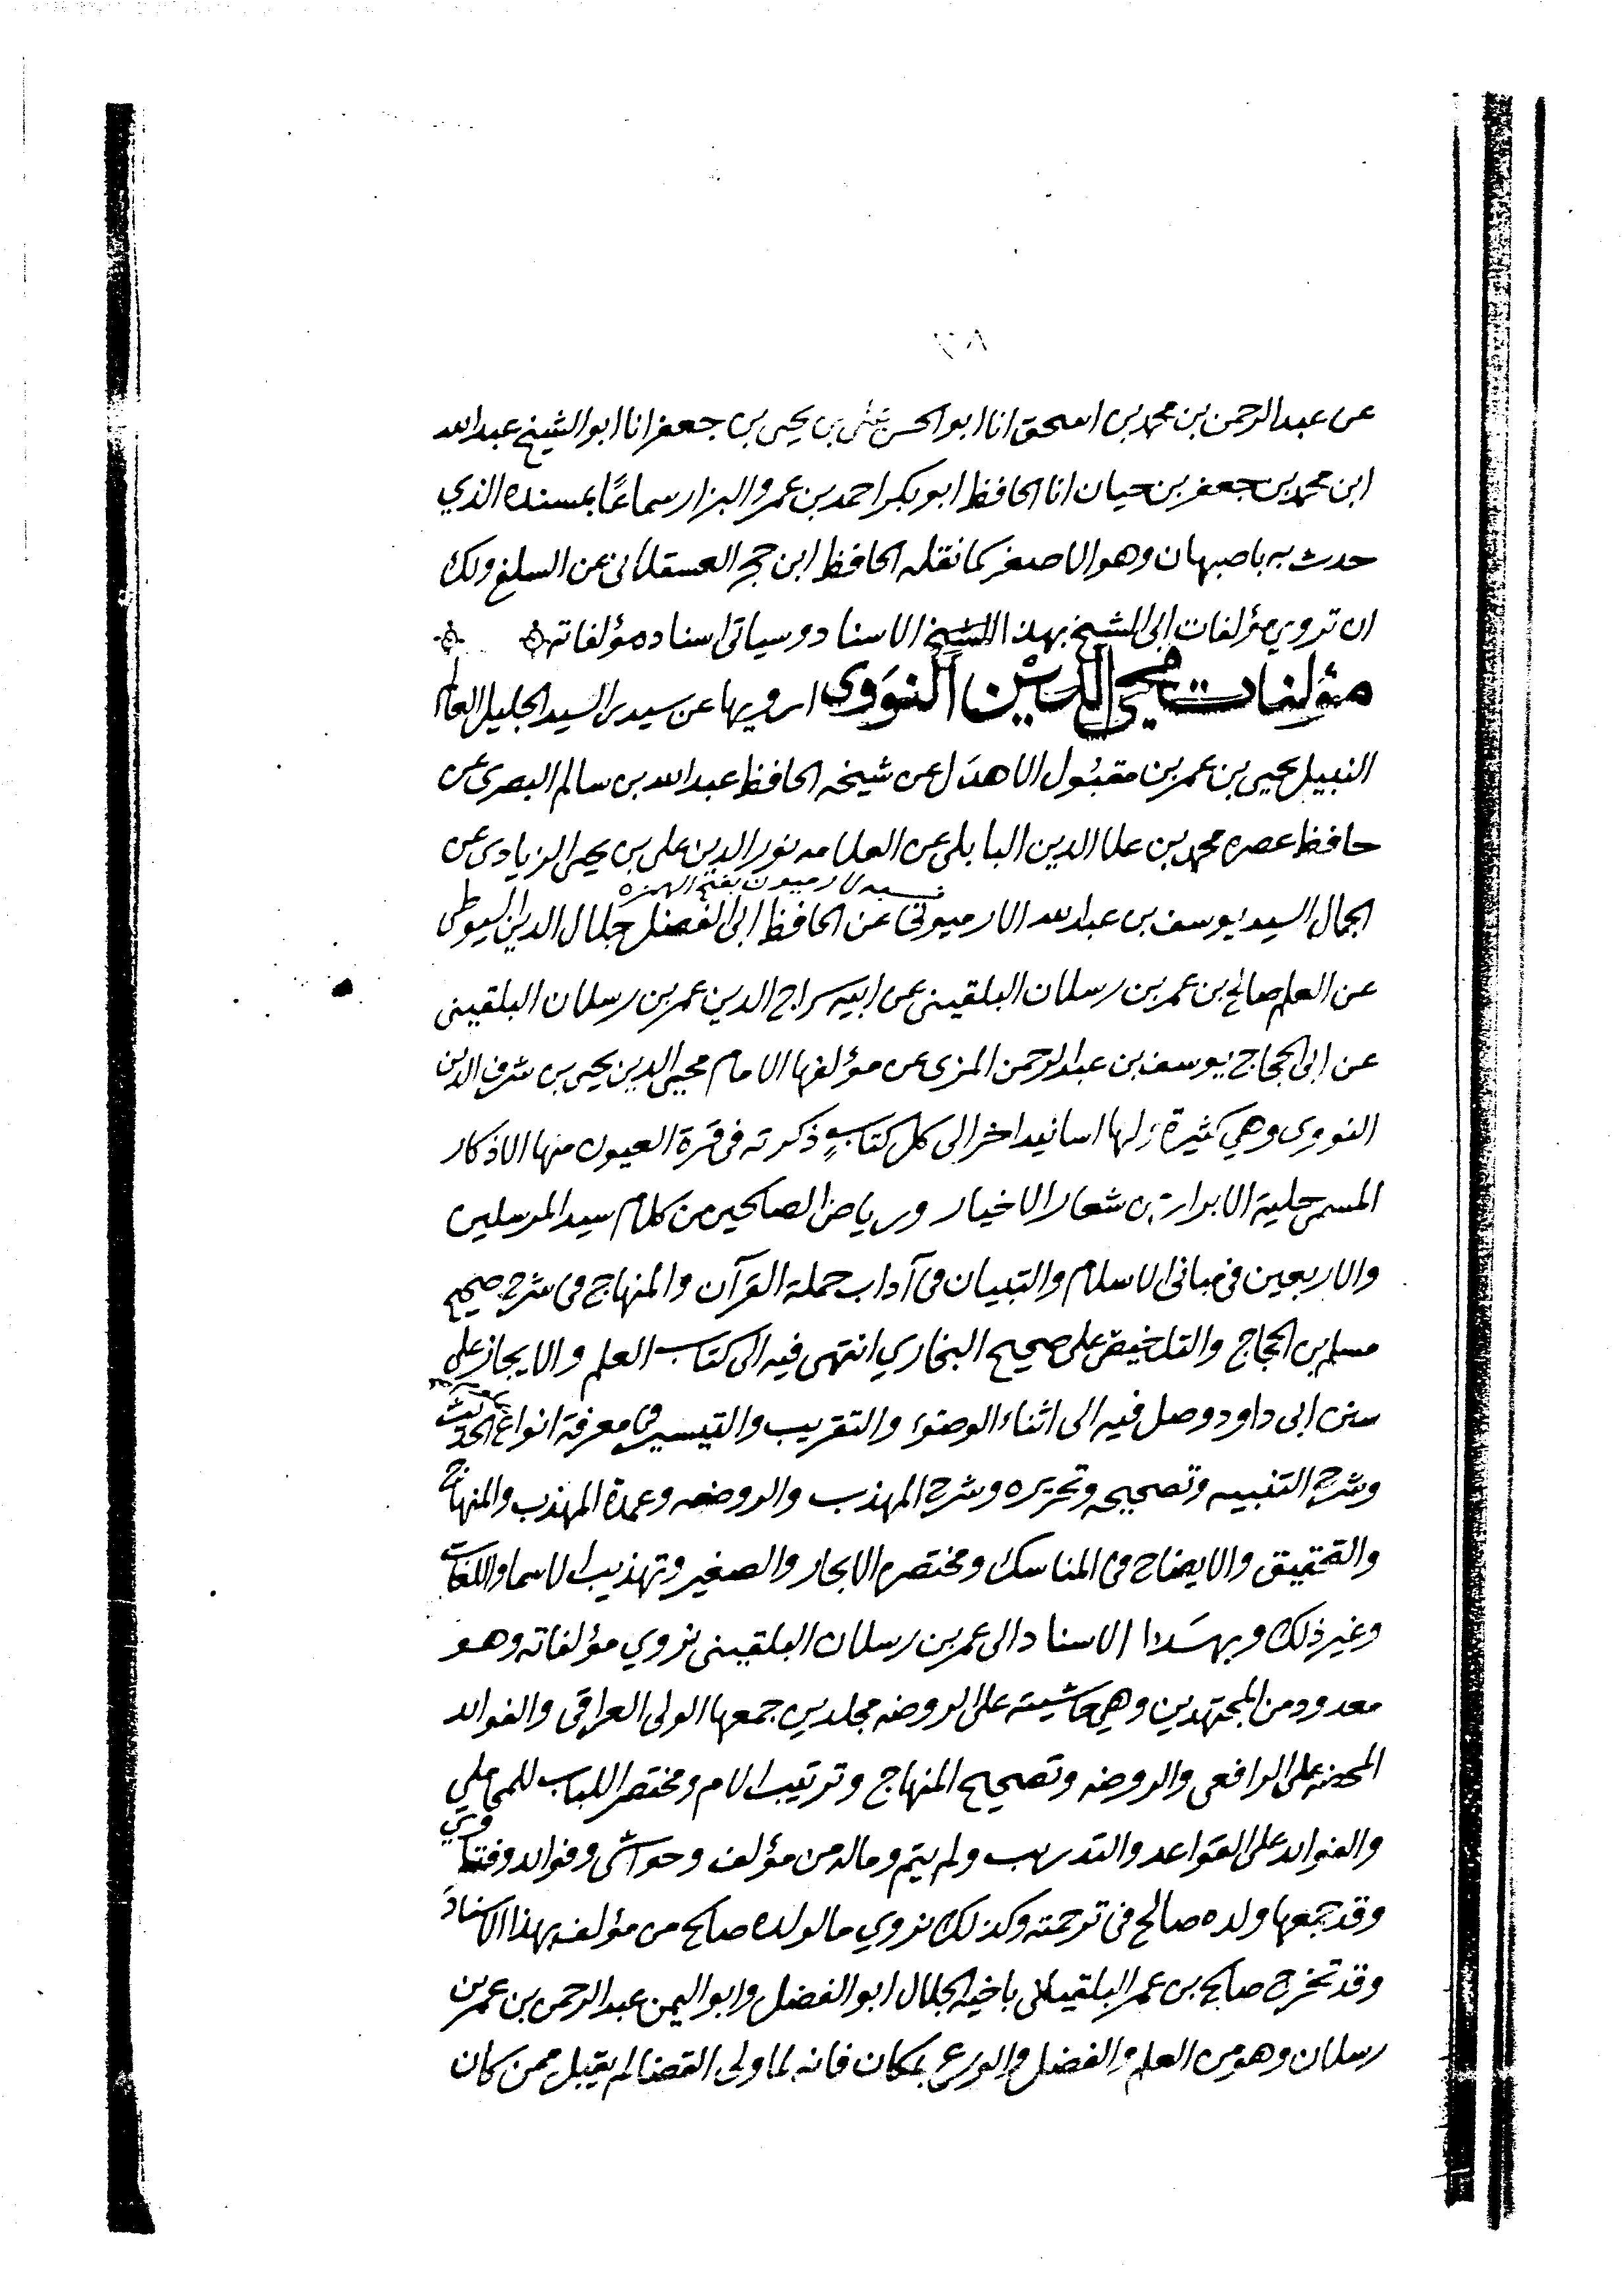 ٨٦
عن عبد الرحمن بن محمد بن اسحق انا ابو الحسن علي بن يحيى بن جعفر انا ابو الشيخ عبد الله
ابن محمد بن جعفر بن حيان انا الحافظ ابو بكر احمد بن عمرو البزار سماعًا بمسنده الذي
حدث به باصبهان وهو الاصغر كما نقله الحافظ ابن حجر العسقلاني عن السلفي ولك
ان تروي مؤلفات ابي الشيخ بهذا الاسناد وسياتي اسناده مؤلفاته
مؤلفات محيي الدين النووي ارويها عن سيدي السيد الجليل العالم
النبيل يحيى بن عمر بن مقبول الاهدل عن شيخه الحافظ عبد الله بن سالم البصري عن
حافظ عصره محمد بن علا الدين البابلي عن العلامه نور الدين علي بن يحيى الزيادي عن
نسبه لارميون بفتح الهمزه
الجمال السيد يوسف بن عبد الله الارميوني عن الحافظ ابي الفضل جلال الدين السيوطي
عن العلم صالح بن عمر بن رسلان البلقيني عن ابيه سراج الدين عمر بن رسلان البلقيني
عن ابي الحجاج يوسف بن عبد الرحمن المزي عن مؤلفها الامام محيي الدين يحيى بن شرف الدين
النووي وهي كثيرة ولها اسانيد اخر الى كل كتابٍ ذكرته في قرة العيون منها الاذكار
المسمى حلية الابرار شعار الاخيار ورياض الصالحين من كلام سيد المرسلين
والاربعين في مباني الاسلام والتبيان في آداب حملة القرآن والمنهاج في شرح صحيح
مسلم بن الحجاج والتلخيص على صحيح البخاري انتهى فيه الى كتاب العلم والايجاز على
سنن ابي داود وصل فيه الى اثناء الوضوء والتقريب والتيسير في معرفة انواع الحديث
وشرح التنبيه وتصحيحه وتحريره وشرح المهذب والروضه وعمدة المهذب والمنهاج
والتحقيق والايضاح في المناسك ومختصره الايجاز والصغير وتهذيب الاسما واللغات
وغير ذلك وبهذا الاسناد الى عمر بن رسلان البلقيني نروي مؤلفاته وهو
معدود من المجتهدين وهي حاشيته على الروضه مجلدين جمعها الولي العراقي والفوائد
المحضه على الرافعي والروضه وتصحيح المنهاج وترتيب الام ومختصر اللباب للمحاملي
والفوائد على القواعد والتدريب ولم يتم وماله من مؤلف وحواشى وفوائد وفتاوي
وقد جمعها ولده صالح في ترجمته وكذلك نروي ما لولده صالح من مؤلف بهذا الاسناد
وقد تخرج صالح بن عمر البلقيني باخيه الجلال ابو الفضل وابو اليمن عبد الرحمن بن عمر بن
رسلان وهو من العلم والفضل والورع بمكان فانه لما ولى القضا لم يقبل ممن كان